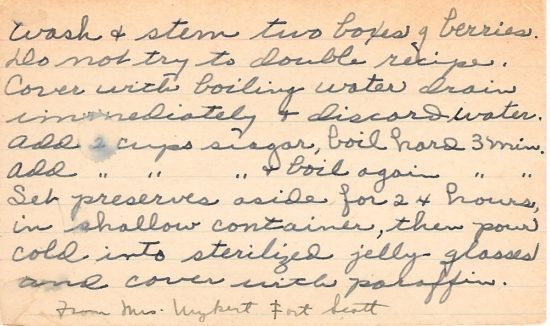 Wash & stem two boxes of berries.
Do not try to double recipe.
Cover with boiling water drain
immediately & discord water.
Add 2 cups siugar, boil hard 3 min.
Add " " " & boil again " "
Set preserves aside for 24 hours,
in shallow container, then pour
cold into sterilized jelly glasses
and cover with paraffin.
From Mrs. Fort Scott